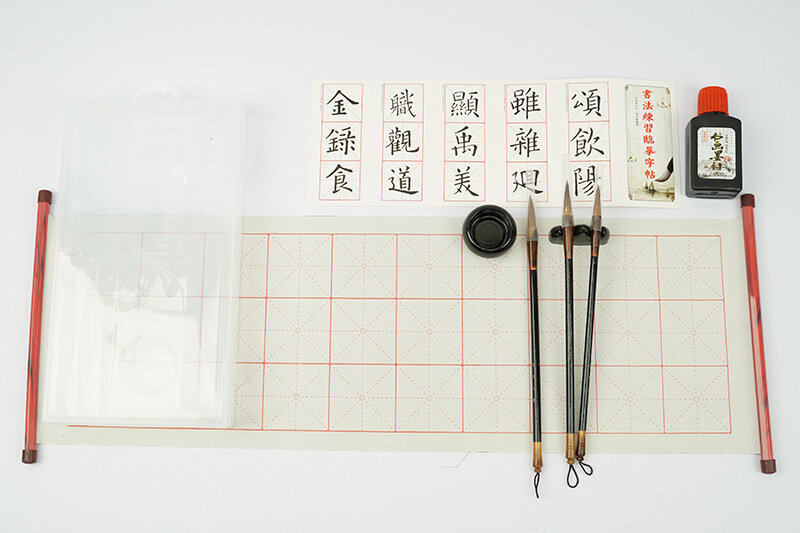 書法練習臨摹字帖
頌飲陽
雖雜廻
顯禹美
職觀道
金録食
墨汁